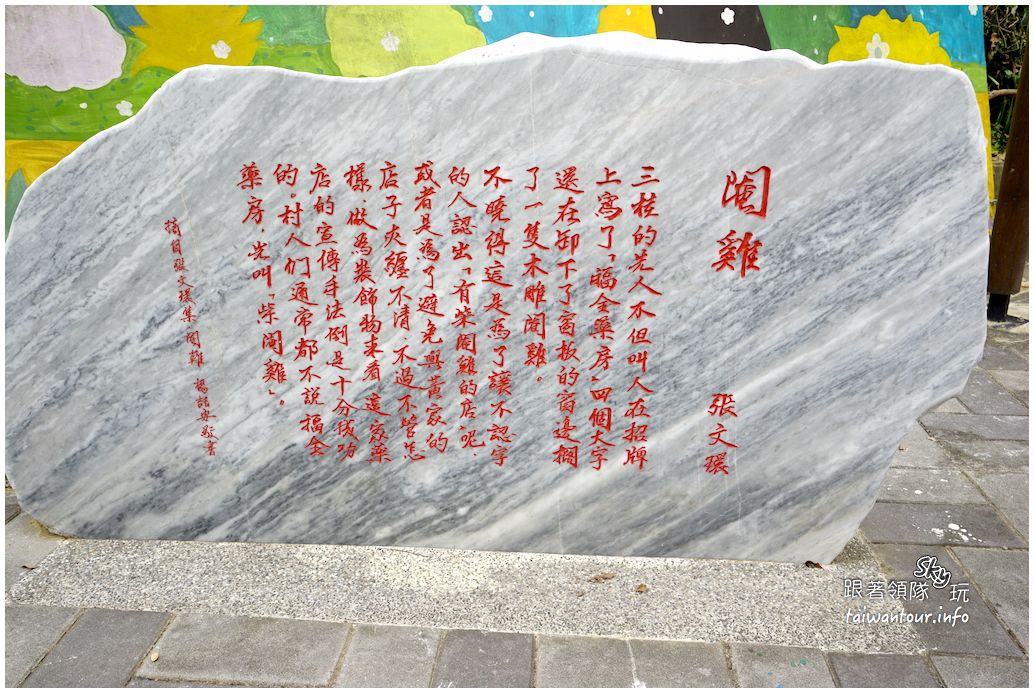 閹雞
張文環
三桂的先人不但叫人在招牌
上寫了「福全藥房」四個大字
還在卸下了窗板的窗邊擱
了一隻木雕閹雞。
不曉得這是為了讓不認字
的人認出「有柴閹雞的店」呢.
或者是為了避免與黃家的
店子夾纏不清.不過不管怎
樣.做為裝飾物來看這家藥
店的宣傳手法倒是十分成功
的。村人们通常都不說福全
藥房.光叫「柴閹雞」。
摘自張文環集 閹雞
跟著領隊Sky玩
taiwantour.info